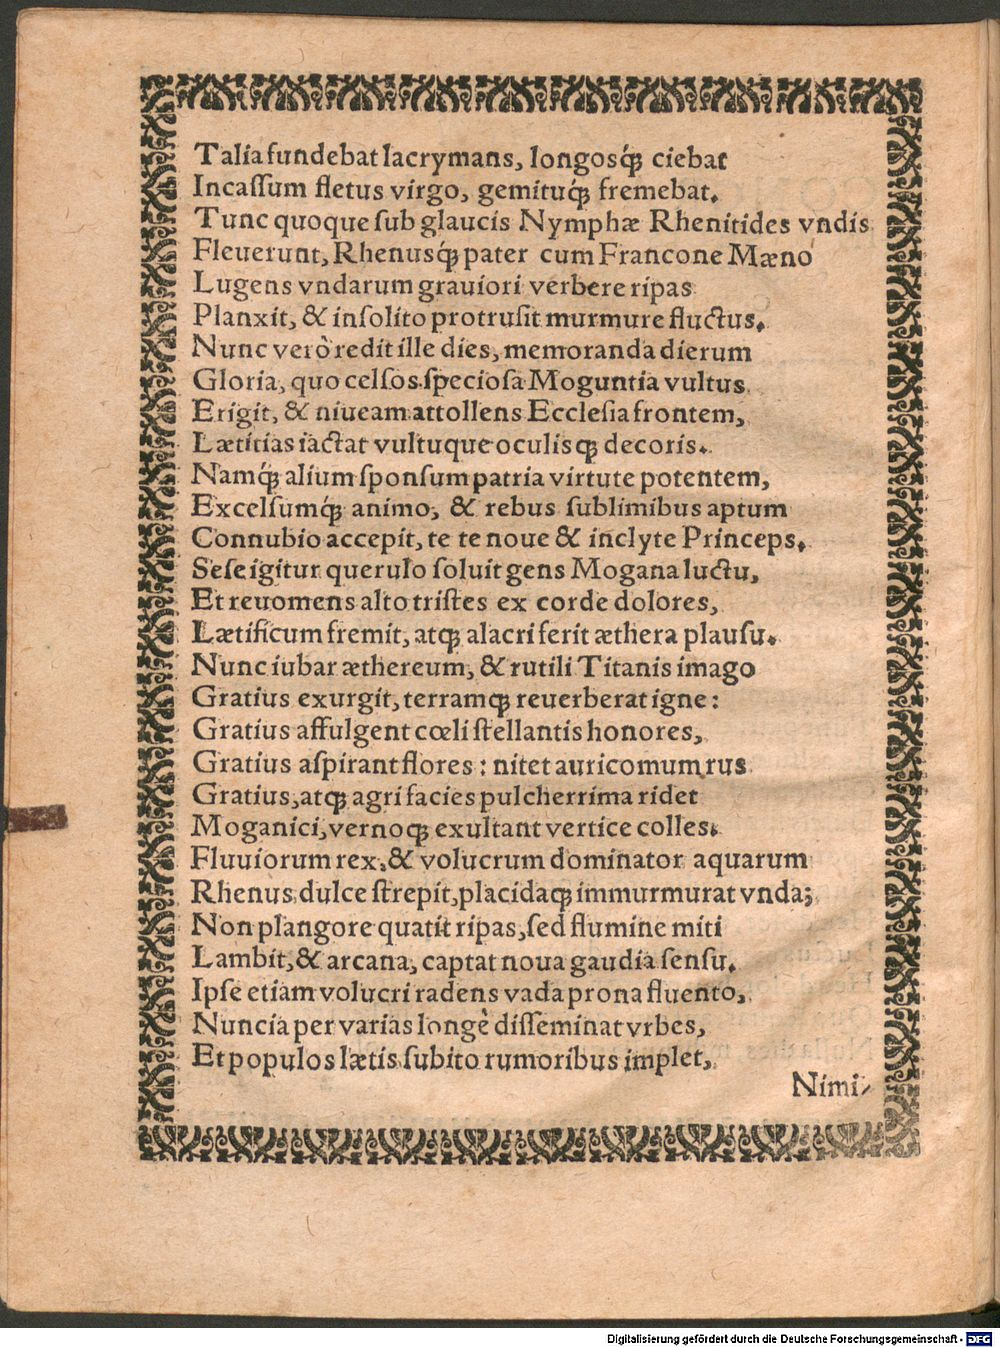 Talia fundebat lacrymans, longosq́ꝫ ciebat
Incaſſum fletus virgo, gemituq́ꝫ fremebat.
Tunc quoque ſub glaucis Nymphæ Rhenitides vndis
Fleuerunt, Rhenusq́ꝫ pater cum Francone Mæno
Lugens vndarum grauiori verbere ripas
Planxit, & inſolito protruſit murmure fluctus.
Nunc verò redit ille dies, memoranda dierum
Gloria, quo celſos ſpecioſa Moguntia vultus
Erigit, & niueam attollens Eccleſia frontem,
Lætitias iactat vultuque oculisqꝫ decoris.
Namq́ꝫ alium ſponſum patria virtute potentem,
Excelſumq́ꝫ animo, & rebus ſublimibus aptum
Connubio accepit, te te noue & inclyte Princeps.
Sese igitur querulo ſoluit gens Mogana luctu,
Et reuomens alto triſtes ex corde dolores,
Lætificum fremit, atqꝫ alacri ferit æthera plauſu.
Nunc iubar æthereum, & rutili Titanis imago
Gratius exurgit, terramqꝫ reuerberat igne:
Gratius affulgent cœli ſtellantis honores,
Gratius aſpirant flores: nitet auricomum rus
Gratius, atqꝫ agri facies pulcherrima ridet
Moganici, vernoqꝫ exultant vertice colles.
Fluuiorum rex, & volucrum dominator aquarum
Rhenus dulce ſtrepit, placidaqꝫ immurmurat vnda;
Non plangore quatit ripas, ſed flumine miti
Lambit, & arcana, captat noua gaudia ſenſu.
Ipſe etiam volucri radens vada prona fluento,
Nuncia per varias longè diſſeminat vrbes,
Et populos lætis ſubito rumoribus implet,
Nimi-
Digitalisierung gefördert durch die Deutsche Forschungsgemeinschaft - DFG